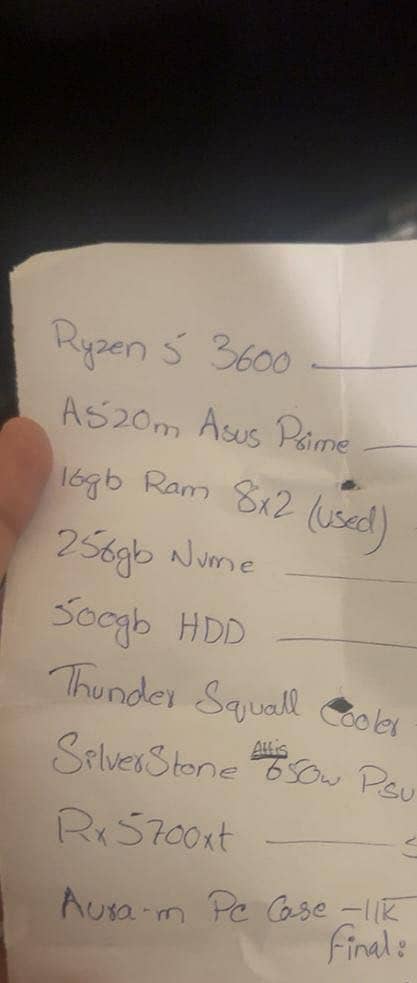 Ryzen 5 3600
A520m Asus Prime
16gb Ram 8x2 (used)
256gb Nvme
500gb HDD
Thunder Squall Cooler
SilverStone Attis 650w Psu
Rx 5700xt
Aura-m Pc Case - 11K
final: